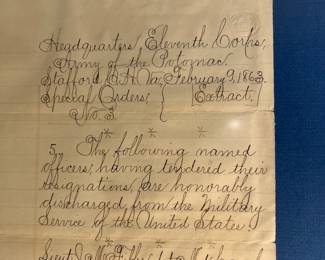 Headquarters, Eleventh Corps,
Army of the Potomac.
Stafford C.H. Va. February 9, 1863.
Special Orders, } Extract.
No. 3.
* * *
5.. The following named
officers, having tendered their
resignations, are honorably
discharged from the Military
Service of the United States.
* * *